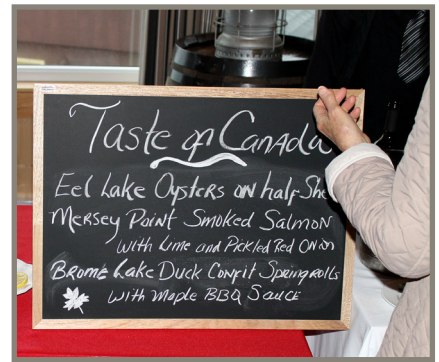 Taste of Canada
Eel Lake Oysters on half She
Mersey Point Smoked Salmon
with Lime and Pickled Red Onion
Brome Lake Duck Confit Springrolls
with Maple BBQ Sauce